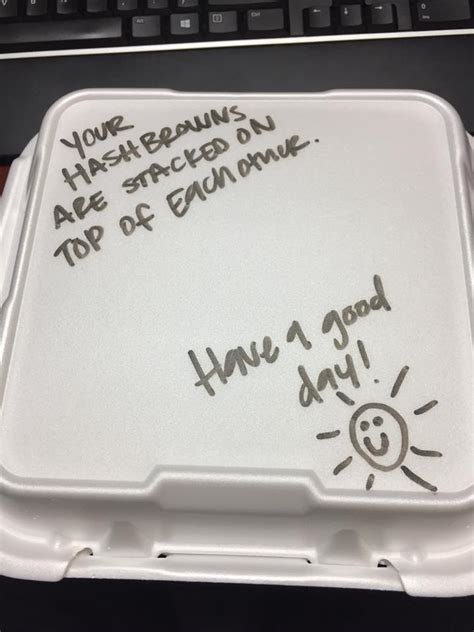 YOUR
HASHBROWNS
ARE STACKED ON
TOP OF EACH OTHER.
Have a good
day!